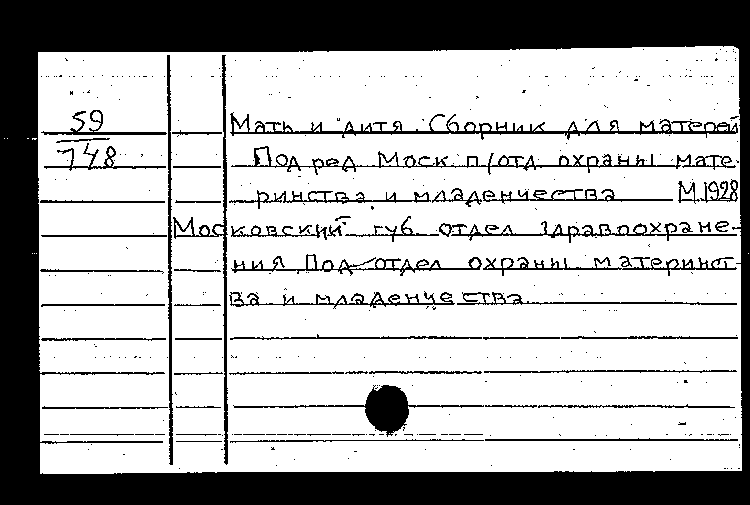 59
748
Мать и дитя. Сборник для матерей
Под ред Моск п/отд. охраны мате-
ринства и младенчества М. 1928
Московский губ. отдел здравоохране-
ния. Под-отдел охраны материнст-
ва и младенчества.